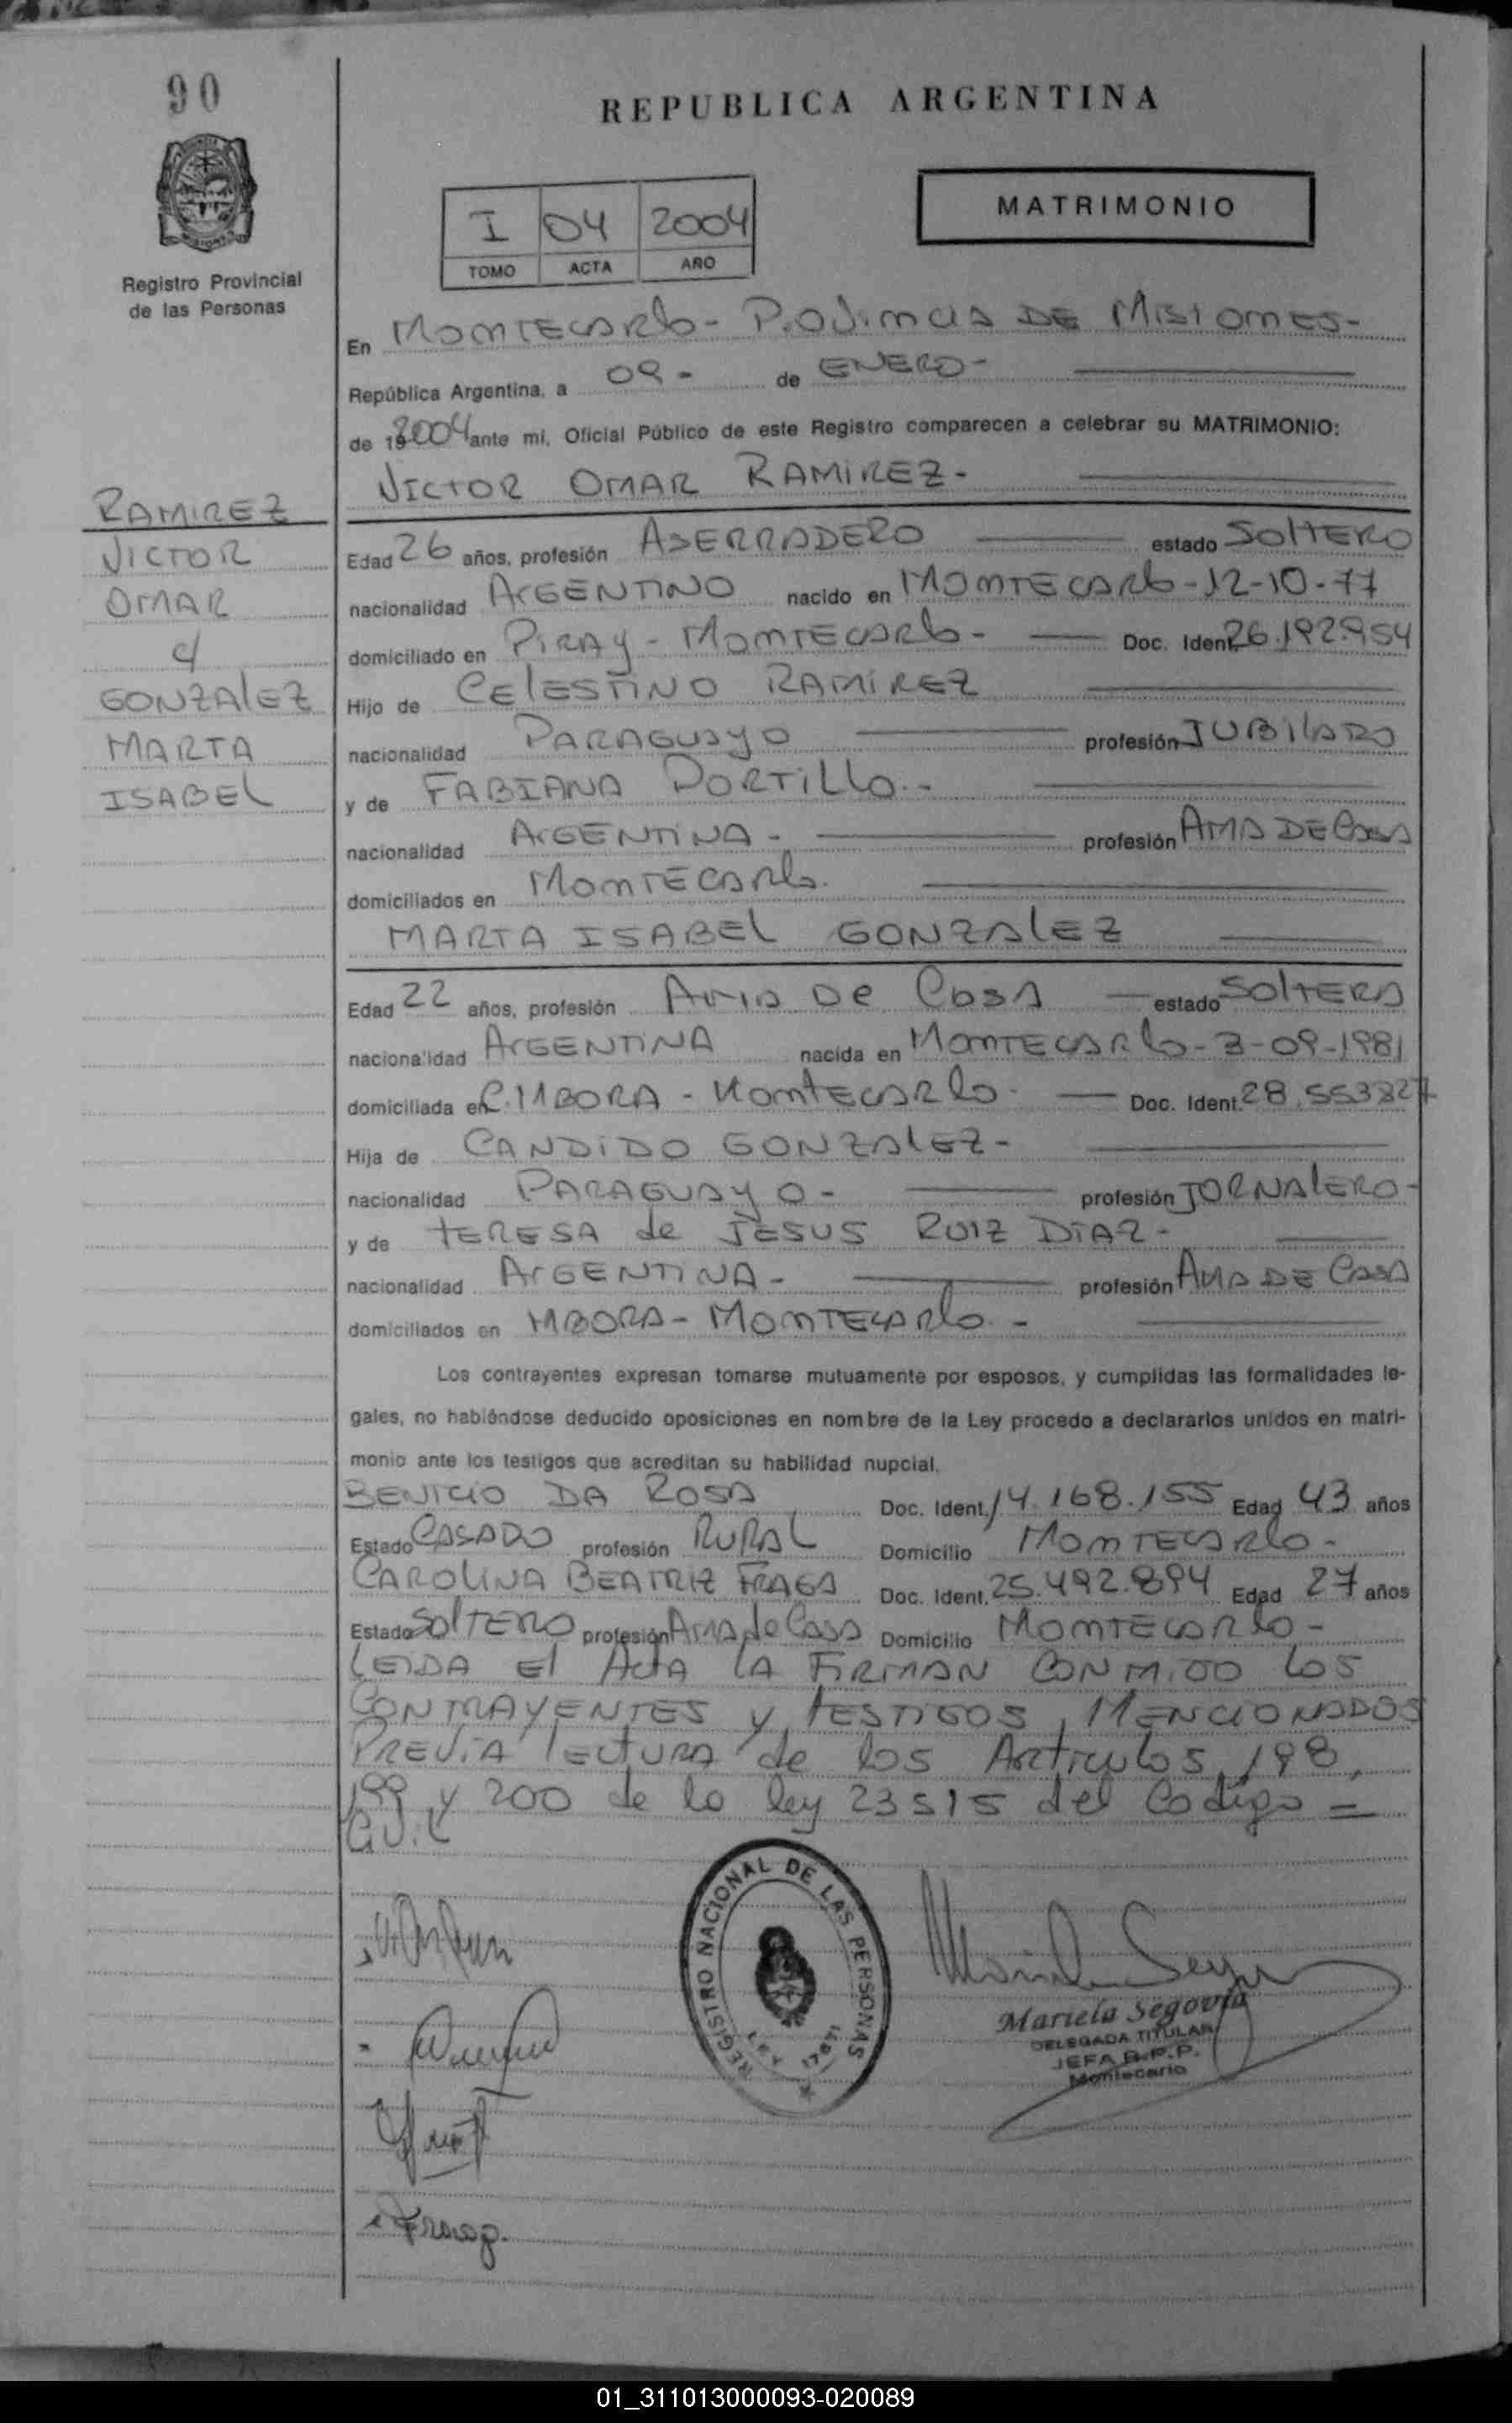 90
REPUBLICA ARGENTINA
MATRIMONIO
I 04 2004
TOMO ACTA AÑO
Registro Provincial
de las Personas
En MONTECARlo - PROVINCIA DE MISIONES-
República Argentina, a 09 - de ENERO -
de 192004 ante mí, Oficial Público de este Registro comparecen a celebrar su MATRIMONIO:
VICTOR OMAR RAMIREZ -
RAMIREZ
VICTOR
OMAR
c/
GONZAlEZ
MARTA
ISABEL
Edad 26 años, profesión ASERRADERO estado SOlTERO
nacionalidad ArGENTINO nacido en MONTECARlo - 12-10-77
domiciliado en PIRAY - MONTECARlo - Doc. Ident. 26.192.954
Hijo de CElESTINO RAMIREZ
nacionalidad PARAGUAYO profesión JUBIlADO
y de FABIANA PORTILLO. -
nacionalidad ArGENTINA - profesión AMA DE CASA
domiciliados en MONTECARlo.
MARTA ISABEL GONZAlEZ
Edad 22 años, profesión AMA De CASA estado SOlTERA
nacionalidad ArGENTINA nacida en MONTECARlo - 3-09-1981
domiciliada en C. MBORA - MONTECARlo - Doc. Ident. 28.553827
Hija de CANDIDO GONZAlEZ -
nacionalidad PARAGUAYO - profesión JORNAlERO -
y de TERESA de JESUS RUIZ DIAZ -
nacionalidad ArGENTINA - profesión AMA DE CASA
domiciliados en MBORA - MONTECARlo. -
Los contrayentes expresan tomarse mutuamente por esposos, y cumplidas las formalidades le-
gales, no habiéndose deducido oposiciones en nombre de la Ley procedo a declararlos unidos en matri-
monio ante los testigos que acreditan su habilidad nupcial.
BENICIO DA ROSA Doc. Ident. 14.168.155 Edad 43 años
Estado CASADO profesión RURAL Domicilio MONTECARlo -
CAROLINA BEATRIZ FRAGA Doc. Ident. 25.492.894 Edad 27 años
Estado SOlTERO profesión AMA de CASA Domicilio MONTECARlo -
LEIDA El ActA lA FIRMAN CONMIGO los
CONTRAYENTES y TESTIGOS, MENCIONADOS
PREVIA lECTURA de los Articulos, 198,
199 y 200 de la ley 23515 del Codigo =
CIVIL
REGISTRO NACIONAL DE LAS PERSONAS
Mariela Segovia
DELEGADA TITULAR
JEFA R.P.P.
Montecarlo
01_311013000093-020089